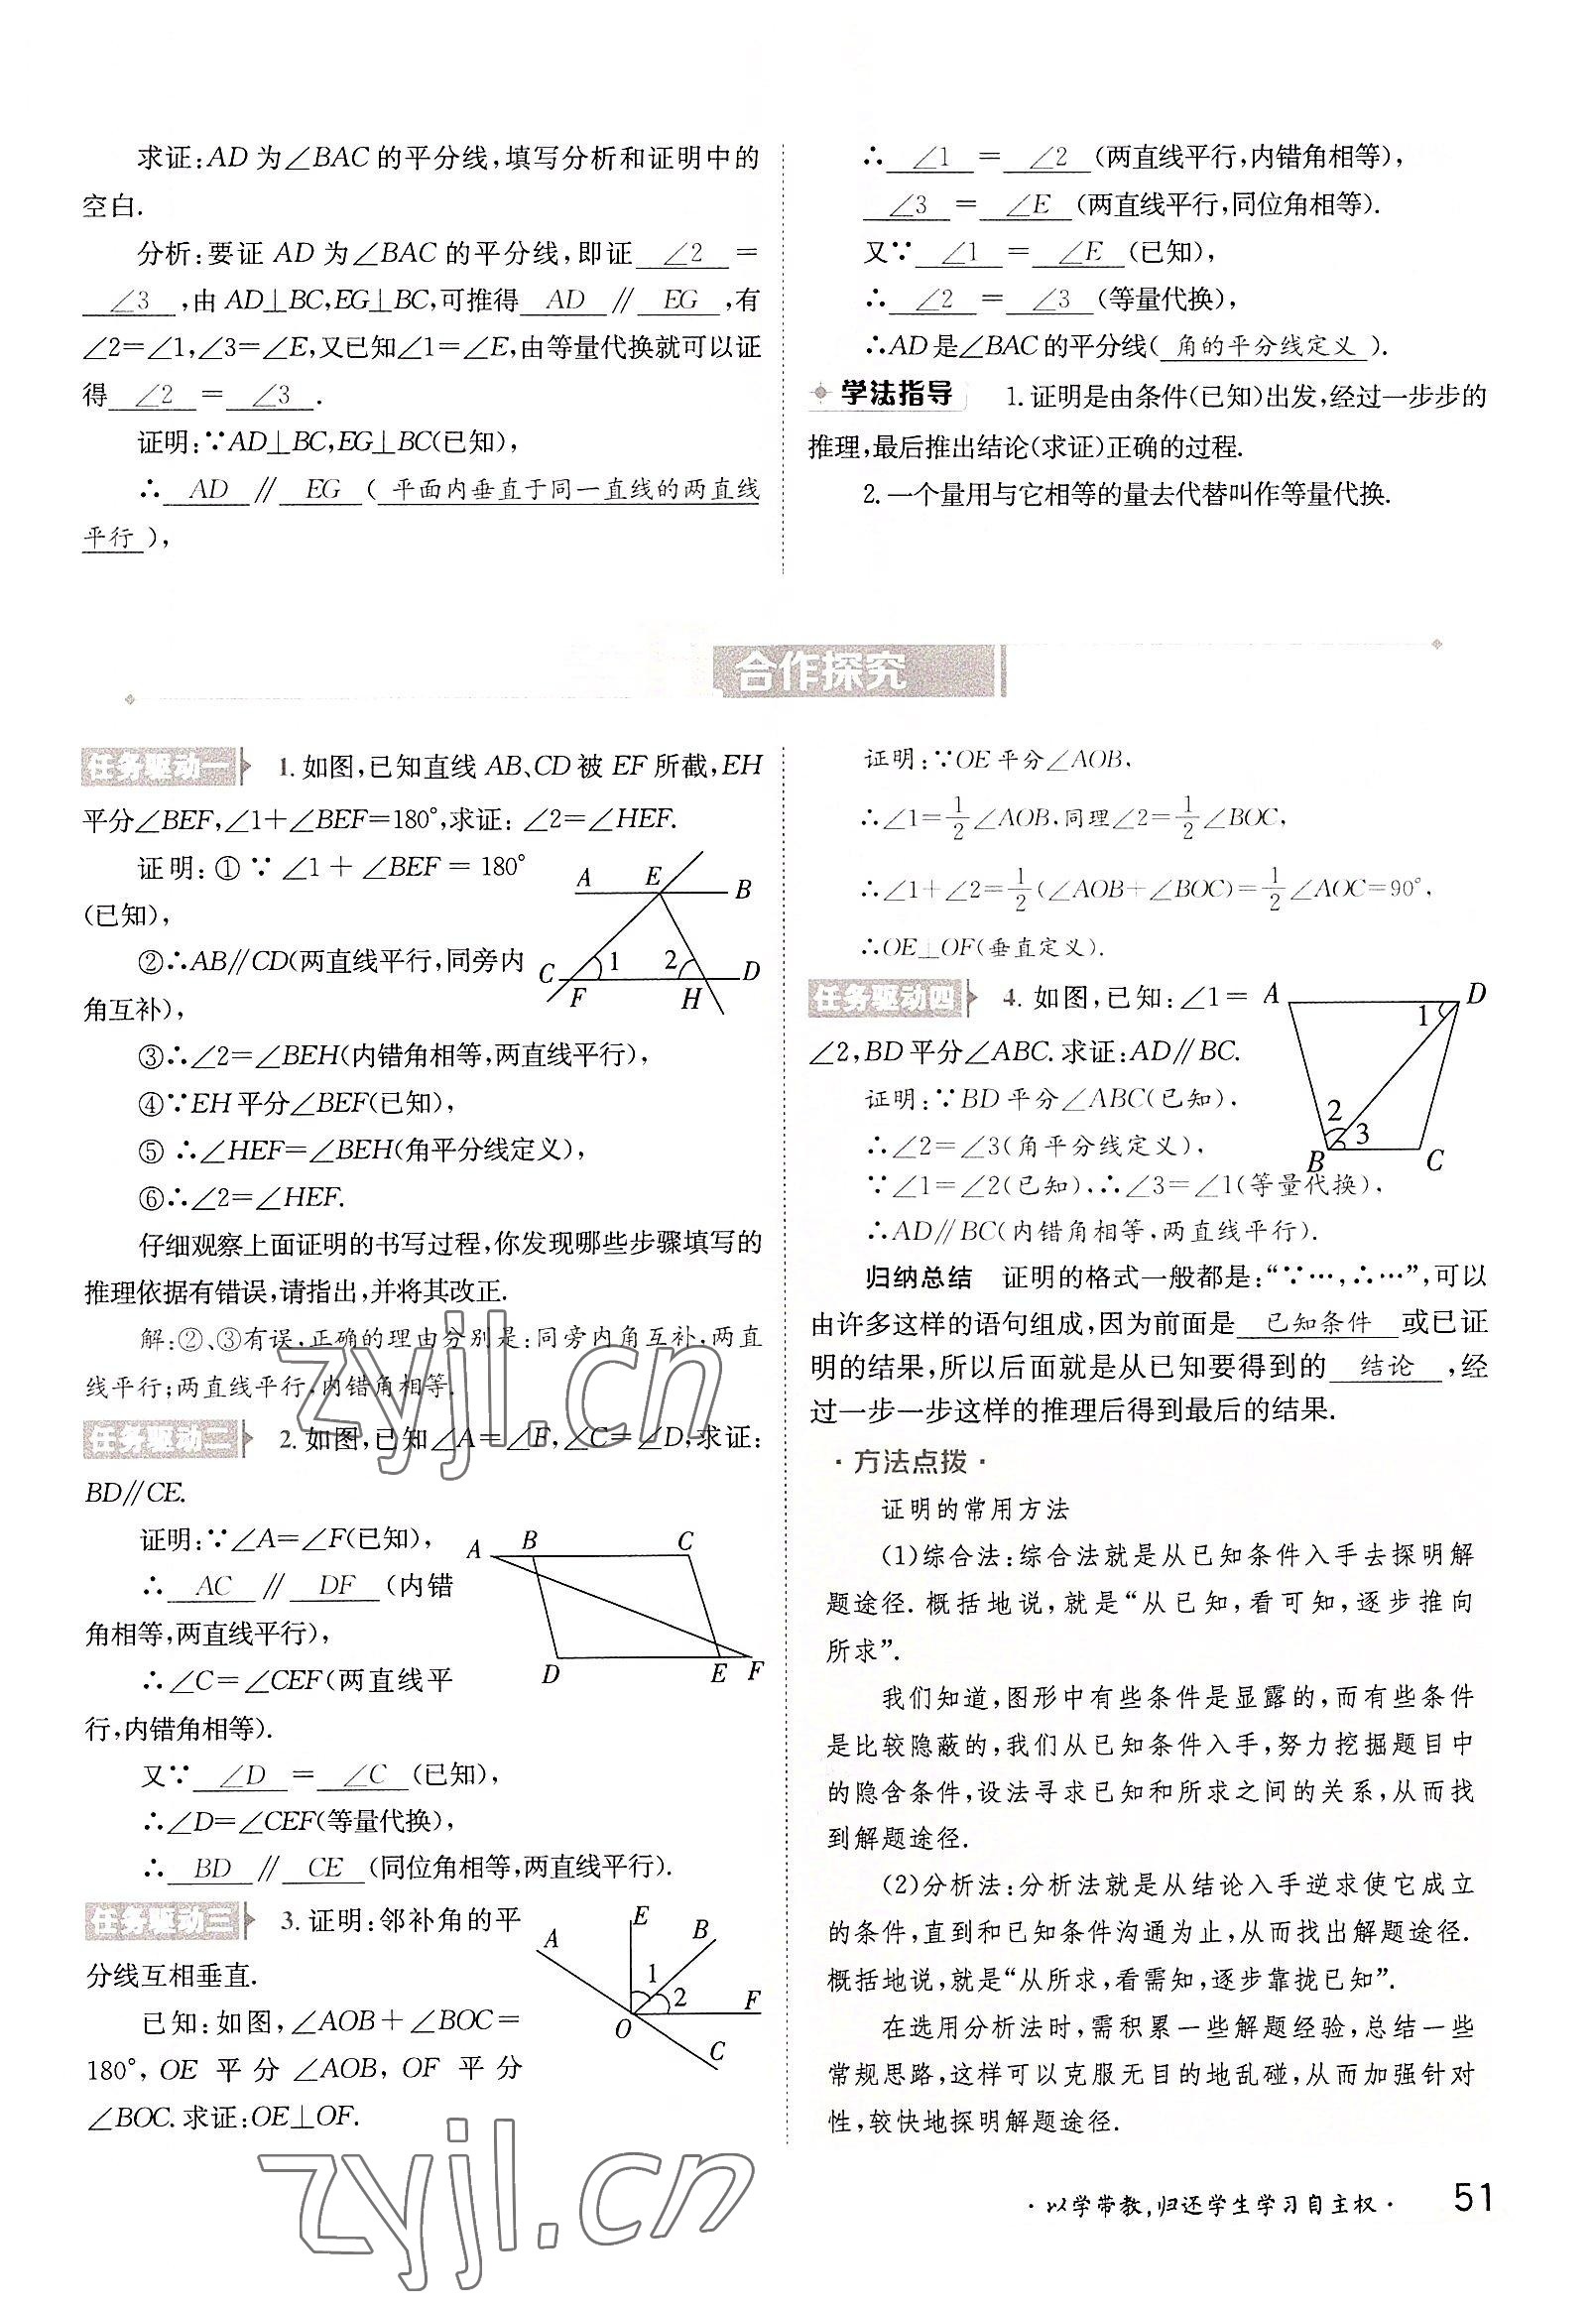 求证:AD为∠BAC的平分线,填写分析和证明中的
空白.
分析:要证AD为∠BAC的平分线,即证 ∠2 =
∠3 ,由AD⊥BC,EG⊥BC,可推得 AD ∥ EG ,有
∠2=∠1,∠3=∠E,又已知∠1=∠E,由等量代换就可以证
得 ∠2 = ∠3 .
证明:∵AD⊥BC,EG⊥BC(已知),
∴ AD ∥ EG ( 平面内垂直于同一直线的两直线
平行 ),
∴ ∠1 = ∠2 (两直线平行,内错角相等),
∠3 = ∠E (两直线平行,同位角相等).
又∵ ∠1 = ∠E (已知),
∴ ∠2 = ∠3 (等量代换),
∴AD是∠BAC的平分线( 角的平分线定义 ).
学法指导 1.证明是由条件(已知)出发,经过一步步的
推理,最后推出结论(求证)正确的过程.
2.一个量用与它相等的量去代替叫作等量代换.
合作探究
任务驱动一 1.如图,已知直线AB、CD被EF所截,EH
平分∠BEF,∠1+∠BEF=180°,求证:∠2=∠HEF.
证明:①∵∠1+∠BEF=180°
(已知),
②∴AB∥CD(两直线平行,同旁内
角互补),
③∴∠2=∠BEH(内错角相等,两直线平行),
④∵EH平分∠BEF(已知),
⑤∴∠HEF=∠BEH(角平分线定义),
⑥∴∠2=∠HEF.
A E B
C 1 2 D
F H
仔细观察上面证明的书写过程,你发现哪些步骤填写的
推理依据有错误,请指出,并将其改正.
解:②、③有误,正确的理由分别是:同旁内角互补,两直
线平行;两直线平行,内错角相等.
任务驱动二 2.如图,已知∠A=∠F,∠C=∠D,求证:
BD∥CE.
证明:∵∠A=∠F(已知),
∴ AC ∥ DF (内错
角相等,两直线平行),
∴∠C=∠CEF(两直线平
行,内错角相等).
A B C
D E F
又∵ ∠D = ∠C (已知),
∴∠D=∠CEF(等量代换),
∴ BD ∥ CE (同位角相等,两直线平行).
任务驱动三 3.证明:邻补角的平
分线互相垂直.
已知:如图,∠AOB+∠BOC=
180°,OE平分∠AOB,OF平分
∠BOC.求证:OE⊥OF.
A E B
1 2 F
O C
证明:∵OE平分∠AOB,
∴∠1=1/2∠AOB,同理∠2=1/2∠BOC,
∴∠1+∠2=1/2(∠AOB+∠BOC)=1/2∠AOC=90°,
∴OE⊥OF(垂直定义).
任务驱动四 4.如图,已知:∠1=
∠2,BD平分∠ABC.求证:AD∥BC.
证明:∵BD平分∠ABC(已知),
∴∠2=∠3(角平分线定义),
∵∠1=∠2(已知),∴∠3=∠1(等量代换),
∴AD∥BC(内错角相等,两直线平行).
A D
1
2
3
B C
归纳总结 证明的格式一般都是:“∵…,∴…”,可以
由许多这样的语句组成,因为前面是 已知条件 或已证
明的结果,所以后面就是从已知要得到的 结论 ,经
过一步一步这样的推理后得到最后的结果.
·方法点拨·
证明的常用方法
(1)综合法:综合法就是从已知条件入手去探明解
题途径.概括地说,就是“从已知,看可知,逐步推向
所求”.
我们知道,图形中有些条件是显露的,而有些条件
是比较隐蔽的,我们从已知条件入手,努力挖掘题目中
的隐含条件,设法寻求已知和所求之间的关系,从而找
到解题途径.
(2)分析法:分析法就是从结论入手逆求使它成立
的条件,直到和已知条件沟通为止,从而找出解题途径.
概括地说,就是“从所求,看需知,逐步靠拢已知”.
在选用分析法时,需积累一些解题经验,总结一些
常规思路,这样可以克服无目的地乱碰,从而加强针对
性,较快地探明解题途径.
zyjl.cn
zyjl.cn
·以学带教,归还学生学习自主权· 51